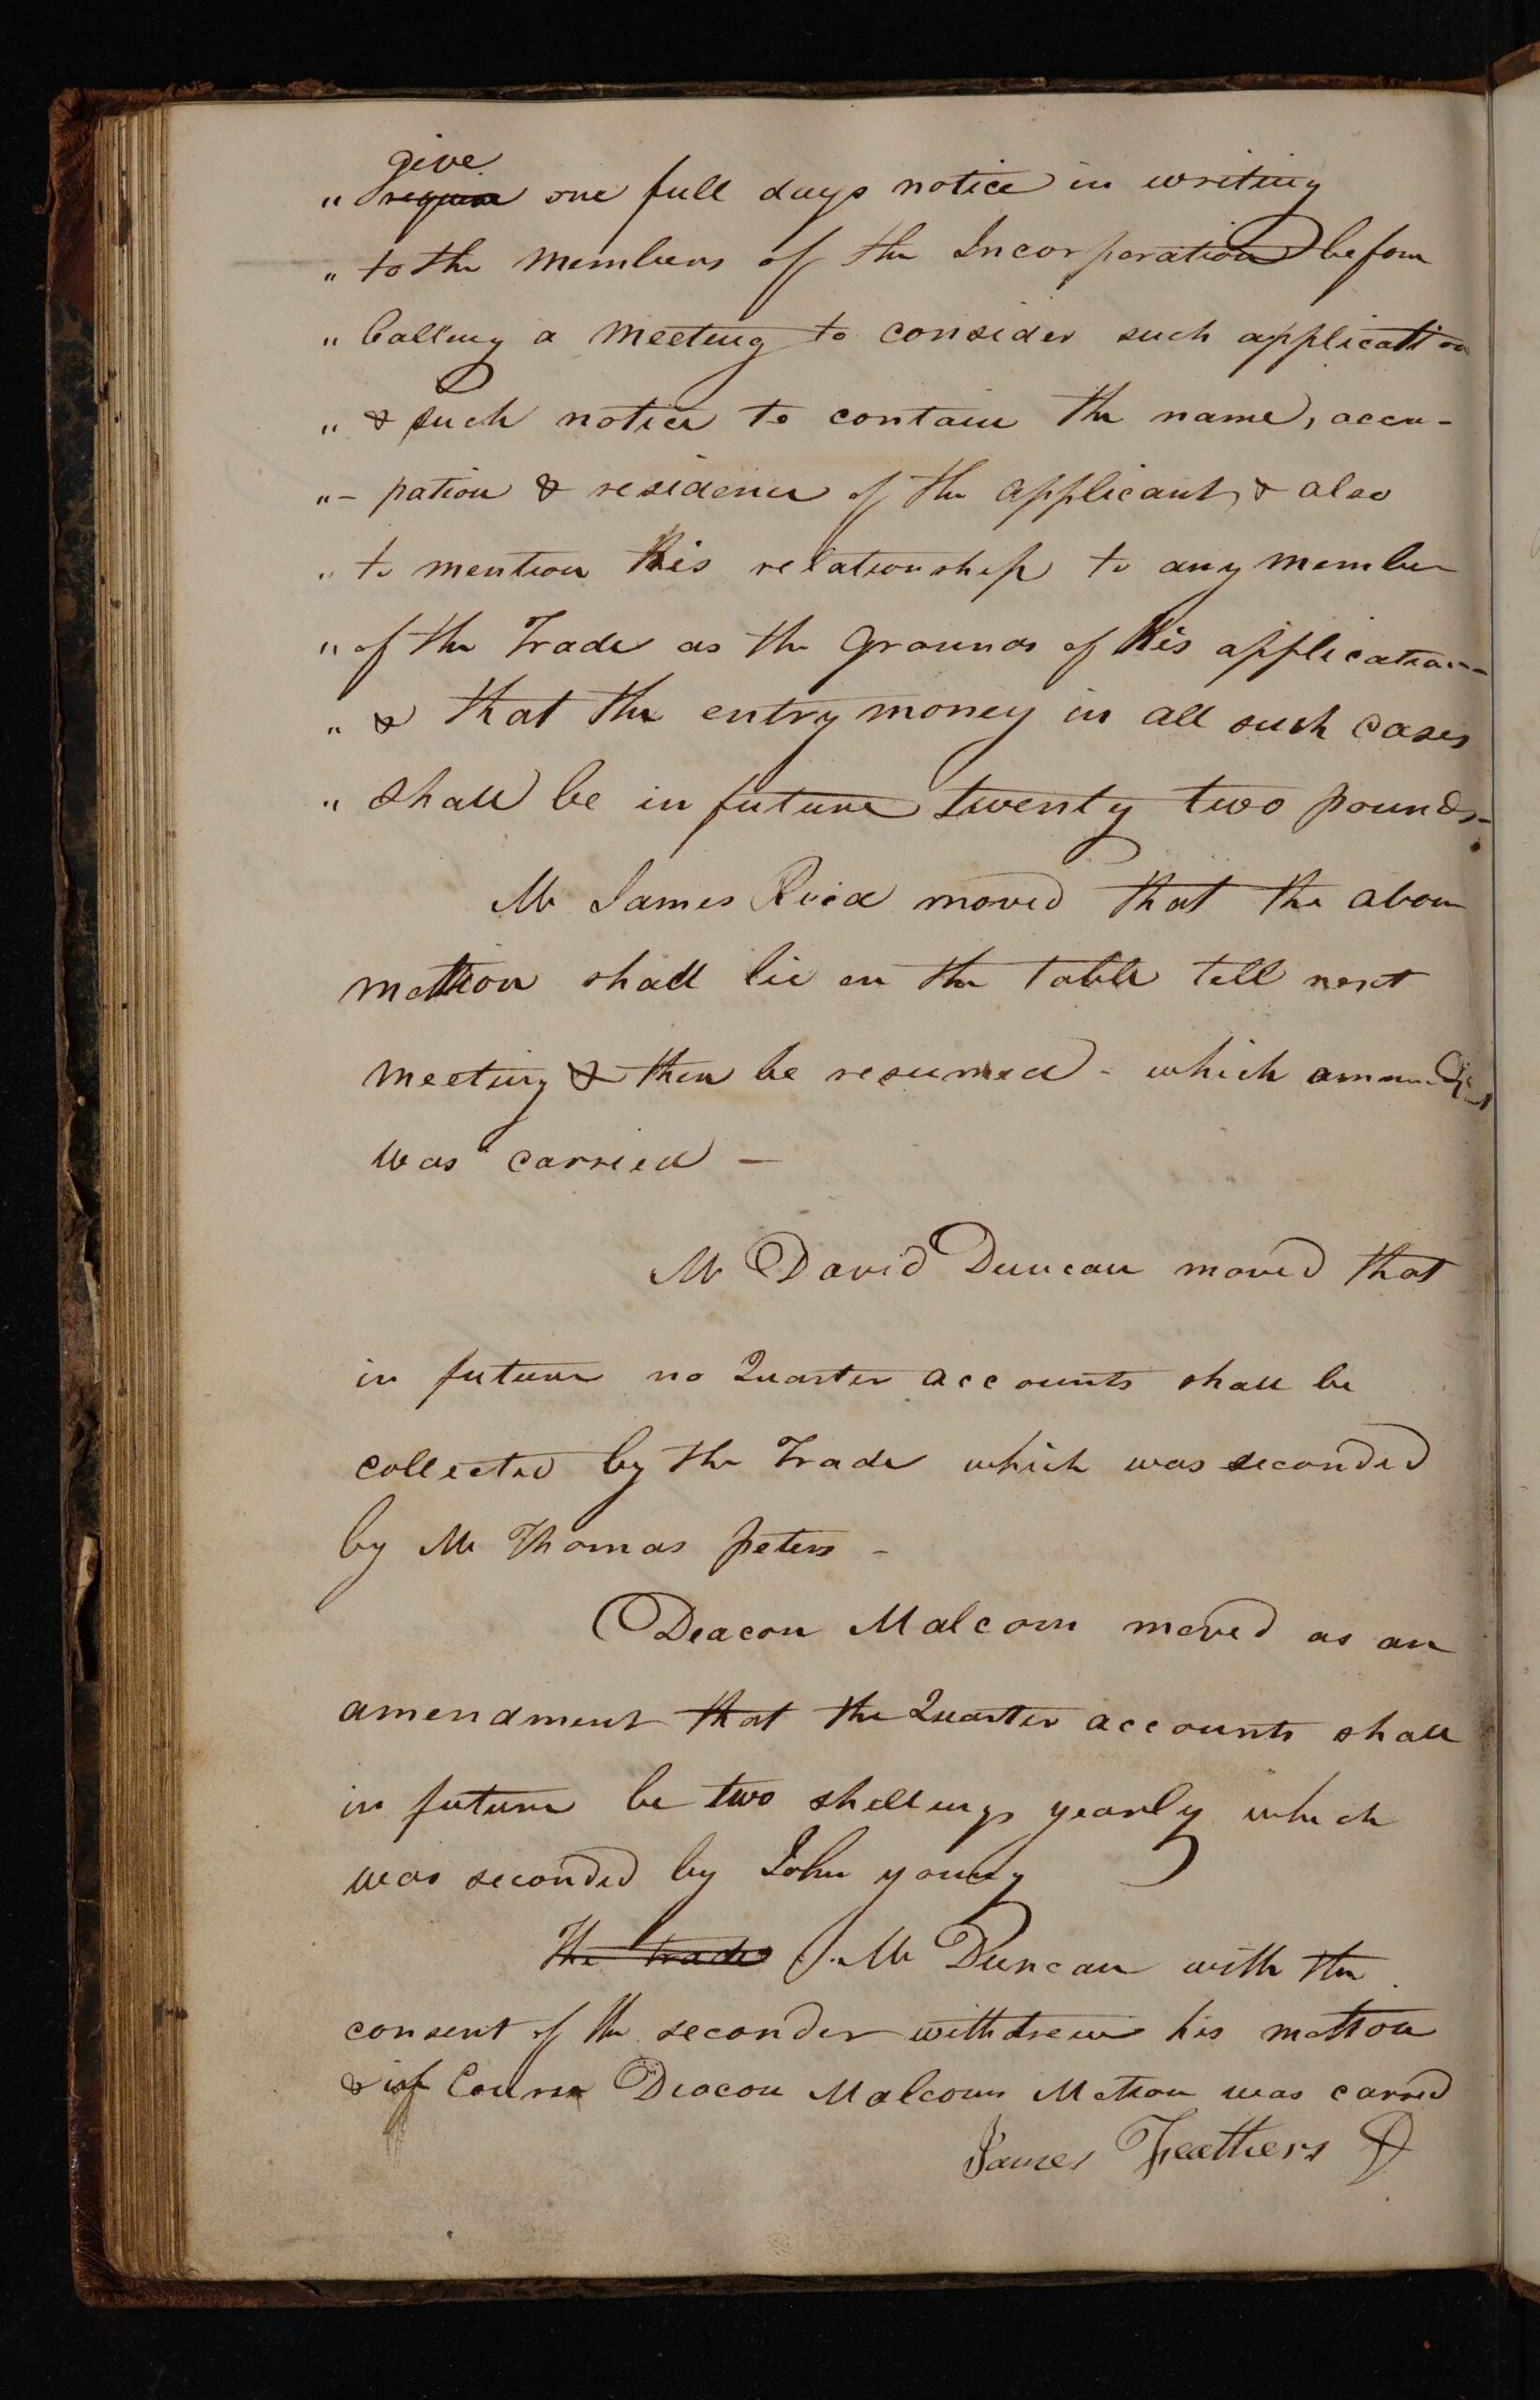 give
" require one full days notice in writing
" to the members of the Incorporation before
" Calling a Meeting to consider such application
" & such notice to contain the name, occu-
" - pation & residence of the applicant, & also
" to mention his relationship to any member
" of the Trade as the grounds of his application
" & that the entry money in all such cases
" shall be in future twenty two pounds -
Mr James Reid moved that the above
motion shall lie on the table till next
meeting & then be resumed - which
was carried -
Mr David Duncan moved that
in future no Quarter accounts shall be
collected by the Trade which was seconded
by Mr Thomas peters -
Deacon Malcom moved as an
amendment that the Quarter accounts shall
in future be two shillings yearly which
was seconded by John young
The trade Mr Duncan with the
consent of the seconder withdrew his motion
& of Course Deacon Malcoms Motion was carried
James Feathers D